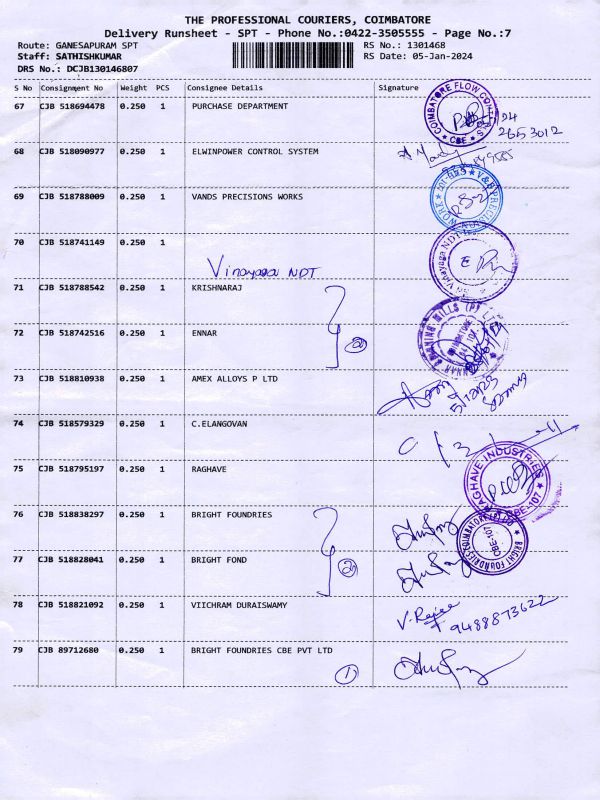 THE PROFESSIONAL COURIERS, COIMBATORE
Delivery Runsheet - SPT - Phone No.:0422-3505555 - Page No.:7
Route: GANESAPURAM SPT RS No.: 1301468
Staff: SATHISHKUMAR RS Date: 05-Jan-2024
DRS No.: DCJB130146807
S No Consignment No Weight PCS Consignee Details Signature
67 CJB 518694478 0.250 1 PURCHASE DEPARTMENT
COIMBATORE FLOW CONT
CBE
2653012
68 CJB 518090977 0.250 1 ELWINPOWER CONTROL SYSTEM
69 CJB 518788009 0.250 1 VANDS PRECISIONS WORKS
70 CJB 518741149 0.250 1
Vinayaga NDT
Vinayaga NDT
71 CJB 518788542 0.250 1 KRISHNARAJ
72 CJB 518742516 0.250 1 ENNAR
2
MILLS (P)
73 CJB 518810938 0.250 1 AMEX ALLOYS P LTD
5/12/23
74 CJB 518579329 0.250 1 C.ELANGOVAN
75 CJB 518795197 0.250 1 RAGHAVE
RAGHAVE INDUSTRIES
CBE-107
76 CJB 518838297 0.250 1 BRIGHT FOUNDRIES
BRIGHT FOUNDRIES COIMBATORE (P) LTD
CBE-107
77 CJB 518828041 0.250 1 BRIGHT FOND
2
78 CJB 518821092 0.250 1 VIICHRAM DURAISWAMY
V. Rajee
9488873622
79 CJB 89712680 0.250 1 BRIGHT FOUNDRIES CBE PVT LTD
1